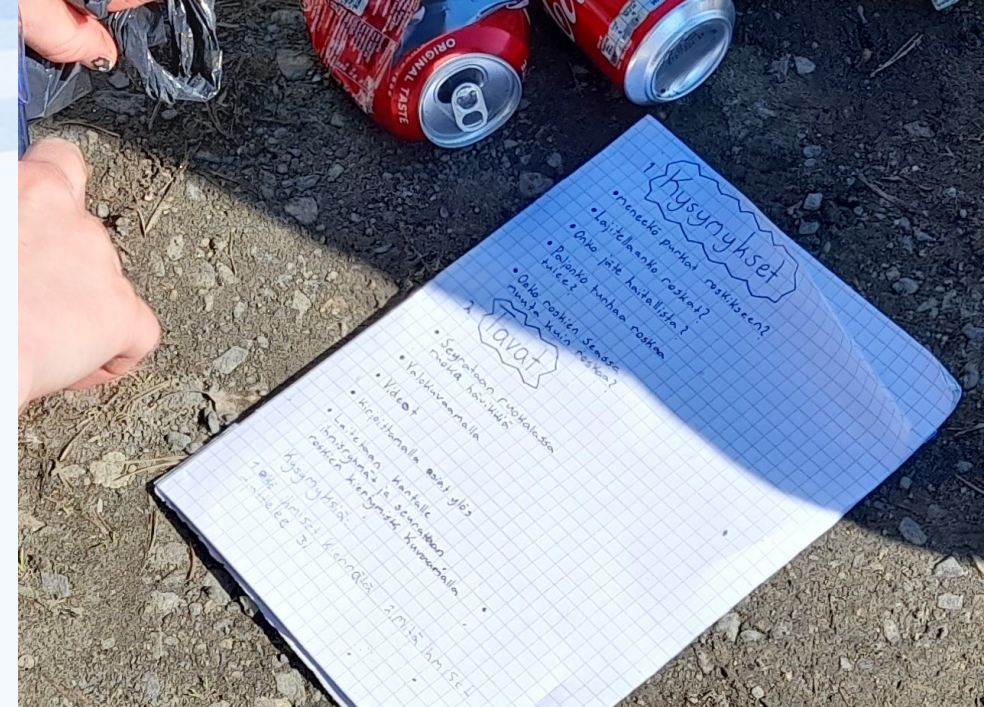 ORIGINAL TASTE
1. Kysymykset
• meneekö purkat roskikseen?
• Lajitellaanko roskat?
• Onko jäte haitallista?
• Paljonko tunhaa roskaa
tulee?
• Onko roskien seassa
muuta kuin roskaa?
2. Tavat
• Seurataan ruokalassa
ruoka hävikkiä
• Valokuvaamalla
• Videot
• Kirjoittamalla asiat ylös
• Laitetaan kartalle
ihmisryhmät ja seurataan
roskien kertymistä kuvaamalla
Kysymyksiä:
ihmiset 2. mitä ihmiset
3.